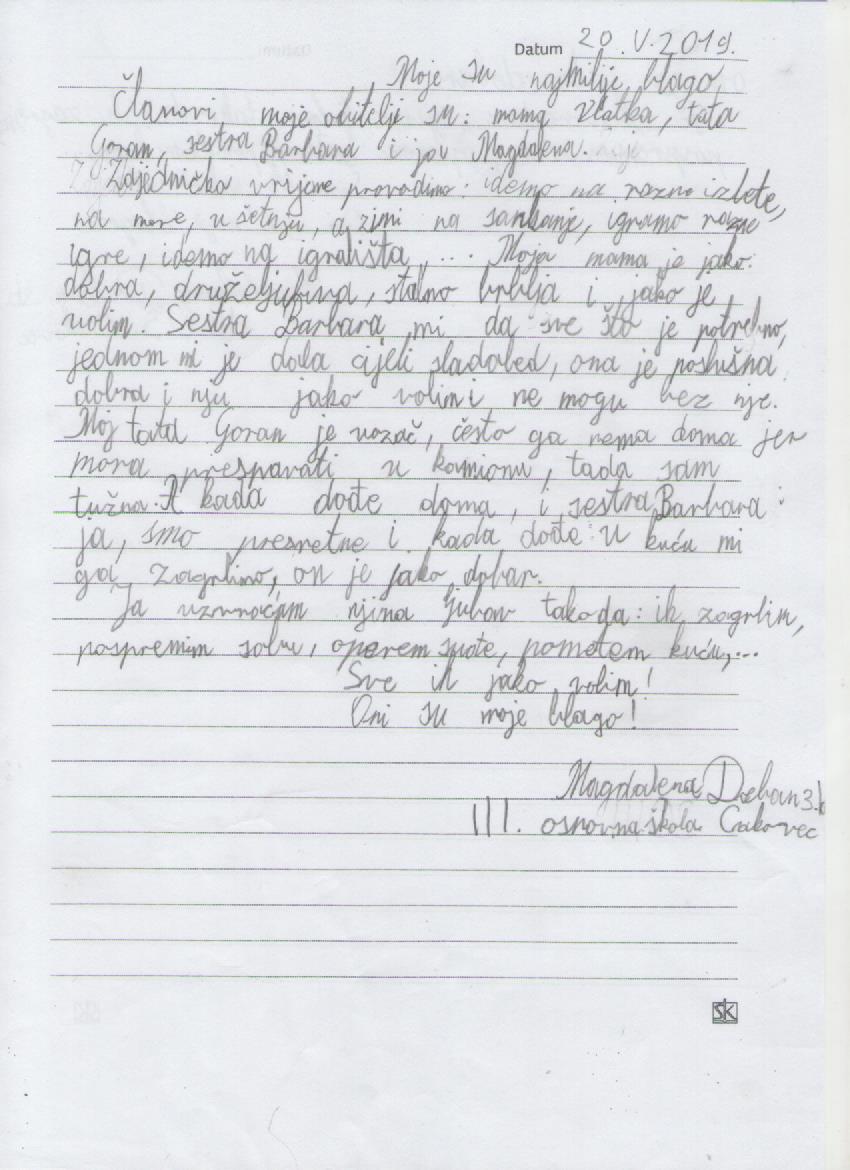 Datum 20.V.2019.
Moje su najmilije blago
Članovi moje obitelji su: mama Zlatka, tata
Goran, sestra Barbara i ja Magdalena.
Zajedničko vrijeme provodimo: idemo na razne izlete,
na more, u šetnju, a zimi na sankanje, igramo razne
igre, idemo na igrališta, ... Moja mama je jako
dobra, druželjubiva, stalno brblja i jako je
volim. Sestra Barbara mi da sve što je potrebno,
jednom mi je dala cijeli sladoled, ona je poslušna
dobra i nju jako volim i ne mogu bez nje.
Moj tata Goran je vozač, često ga nema doma jer
mora prespavati u kamionu, tada sam
tužna. A kada dođe doma, i sestra Barbara i
ja, smo presretne i kada dođe u kuću mi
ga zagrlimo, on je jako dobar.
Ja uzvraćam njina ljubav tako da: ih zagrlim,
pospremim sobu, operem suđe, pometem kuću,...
Sve ih jako volim!
Oni su moje blago!
Magdalena 3.b
III. osnovna škola Čakovec
SK